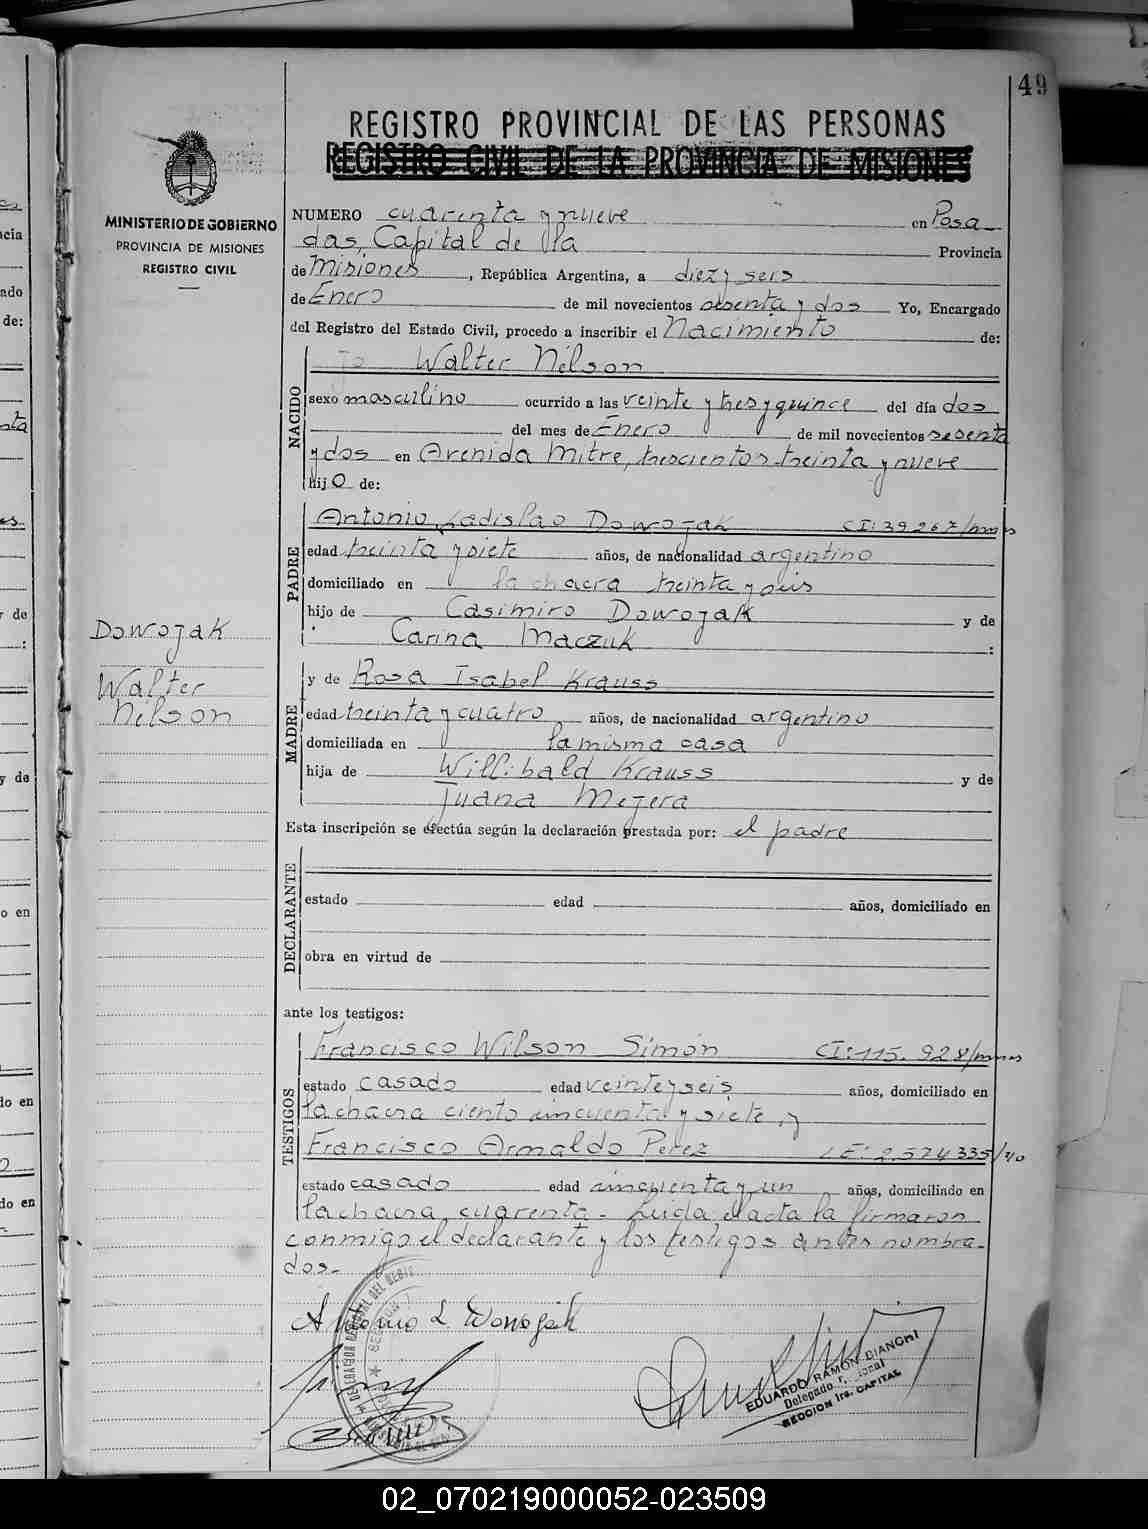 49
REGISTRO PROVINCIAL DE LAS PERSONAS
REGISTRO CIVIL DE LA PROVINCIA DE MISIONES
MINISTERIO DE GOBIERNO
PROVINCIA DE MISIONES
REGISTRO CIVIL
NUMERO cuarenta y nueve en Posa
das, Capital de la Provincia
de Misiones, República Argentina, a diez y seis
de Enero de mil novecientos sesenta y dos Yo, Encargado
del Registro del Estado Civil, procedo a inscribir el Nacimiento de:
NACIDO
Walter Nilson
sexo masculino ocurrido a las veinte y tres y quince del día dos
del mes de Enero de mil novecientos sesenta
y dos en Avenida Mitre, trescientos treinta y nueve
hijo de:
PADRE
Antonio Ladislao Dowojak CI: 39.267/mnes
edad treinta y siete años, de nacionalidad argentino
domiciliado en la chacra treinta y seis
hijo de Casimiro Dowojak y de
Carina Maczuk :
Dowojak
Walter
Nilson
MADRE
y de Rosa Isabel Krauss
edad treinta y cuatro años, de nacionalidad argentino
domiciliada en la misma casa
hija de Willibald Krauss y de
Juana Mejera
Esta inscripción se efectúa según la declaración prestada por: el padre
DECLARANTE
estado edad años, domiciliado en
obra en virtud de
ante los testigos:
TESTIGOS
Francisco Wilson Simón CI: 115.928/mnes
estado casado edad veinte y seis años, domiciliado en
la chacra ciento cincuenta y siete, y
Francisco Arnaldo Perez LE: 2.574335/
estado casado edad cincuenta y un años, domiciliado en
la chacra cuarenta.- Leida, el acta la firmaron
conmigo el declarante y los testigos antes nombra-
dos.-
Antonio L Dowojak
EDUARDO RAMON BIANCHI
Delegado
SECCION 1ra. CAPITAL
02_070219000052-023509